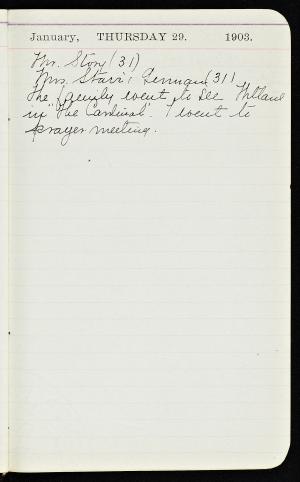 January, THURSDAY 29. 1903.
Mr. Story (31)
Mrs. Starr's German (31)
The family went to see
in "The Cardinal". I went to
prayer meeting.